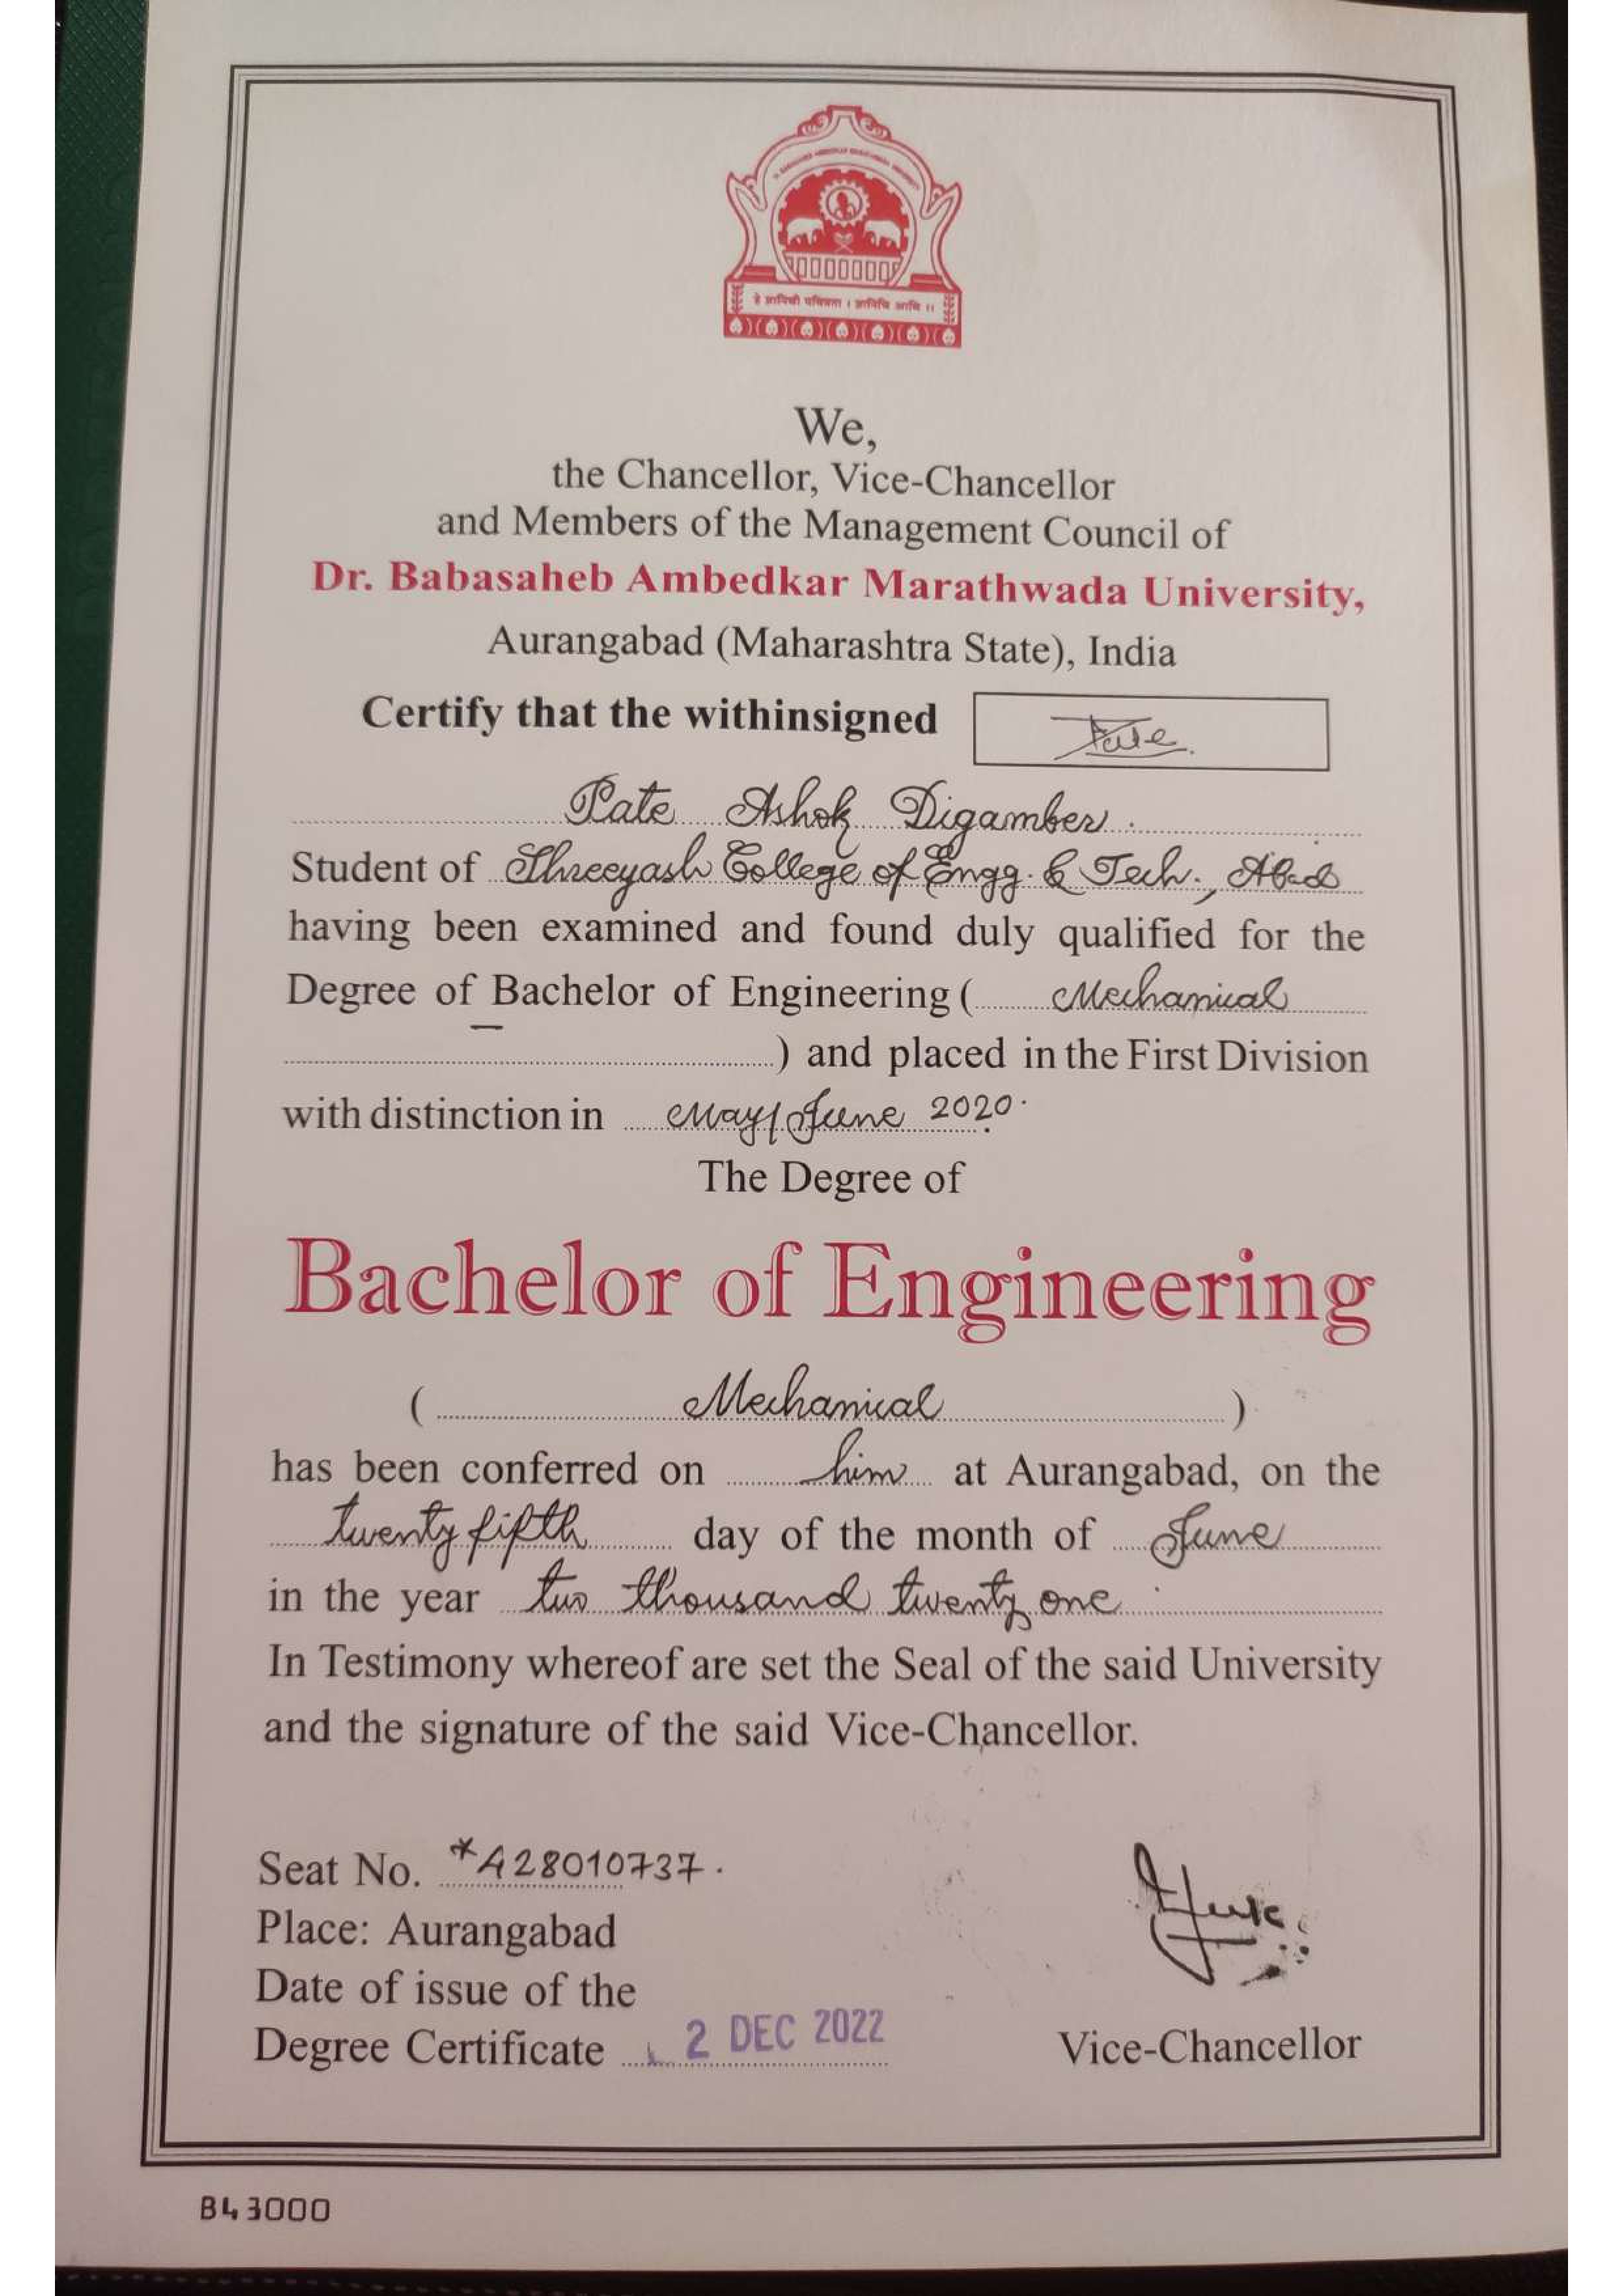 हे ज्ञानियी पवित्रता । ज्ञानियि आथि ।।
We,
the Chancellor, Vice-Chancellor
and Members of the Management Council of
Dr. Babasaheb Ambedkar Marathwada University,
Aurangabad (Maharashtra State), India
Certify that the withinsigned Pate.
Pate Ashok Digamber.
Student of Shreeyash College of Engg. & Tech., A'bad
having been examined and found duly qualified for the
Degree of Bachelor of Engineering ( Mechanical
) and placed in the First Division
with distinction in May/June 2020.
The Degree of
Bachelor of Engineering
( Mechanical )
has been conferred on him at Aurangabad, on the
twenty fifth day of the month of June
in the year two thousand twenty one.
In Testimony whereof are set the Seal of the said University
and the signature of the said Vice-Chancellor.
Seat No. *A28010737.
Place: Aurangabad
Date of issue of the
Degree Certificate 2 DEC 2022
Vice-Chancellor
B43000